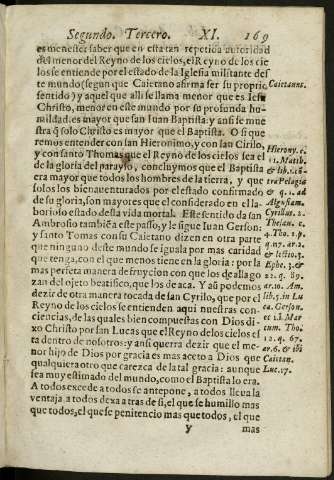 Segundo. Tercero. XI. 169
es menester saber que en esta tan repetida autoridad
del menor del Reyno de los cielos, el Reyno de los cie
los se entiende por el estado de la Iglesia militante des
te mundo (segun que Caietano afirma ser su proprio
sentido) y aquel que alli se llama menor que es Iesu
Christo, menor en este mundo por su profunda hu-
mildad. es mayor que san Iuan Baptista: y ansi se mue
stra q̃ solo Christo es mayor que el Baptista. O si que
remos entender con san Hieronimo, y con san Cirilo,
y con santo Thomas que el Reyno de los cielos sea el
de la gloria del parayso, concluymos que el Baptista
era mayor que todos los hombres de la tierra, y que
solos los bienaventurados por el estado confirmado
de su gloria, son mayores que el considerado en el la-
borioso estado desta vida mortal. Este sentido da san
Ambrosio tambiẽ a este passo, y le sigue Iuan Gerson:
y santo Tomas con su Caietano dizen en otra parte
que ninguno deste mundo se iguala por mas caridad
que tenga, con el que menos tiene en la gloria: por la
mas perfeta manera de fruycion con que los de alla go
zan del objeto beatifico, que los de aca. Y aũ podemos
dezir de otra manera tocada de san Cyrilo, que por el
Reyno de los cielos se entienden aqui nuestras con-
ciencias, de las quales bien compuestas con Dios di-
xo Christo por san Lucas que el Reyno de los cielos es
ta dentro de nosotros: y ansi querra dezir que el me-
nor hijo de Dios por gracia es mas aceto a Dios que
qualquiera otro que carezca de la tal gracia: aunque
sea muy estimado del mundo, como el Baptista lo era.
A todos excede a todos se antepone, a todos lleva la
ventaja. a todos dexa a tras de si, el que se humillo mas
que todos, el que se penitencio mas que todos, el que
Y mas
Caietanus.
Hierony. c.
11. Matth.
& lib. 1. cõ-
tra Pelagiũ
& q. 1. ad
Algasiam.
Cyrillus. 2.
Thesau. c.
4. Tho. 1. p.
q. 117. ar. 2.
Ephe. 3. &
22. q. 89.
ar. 10. Am.
lib. 5. in Lu
ca. Gerson.
Tho.
12. q. 67.
Caietan.
Luc. 17.